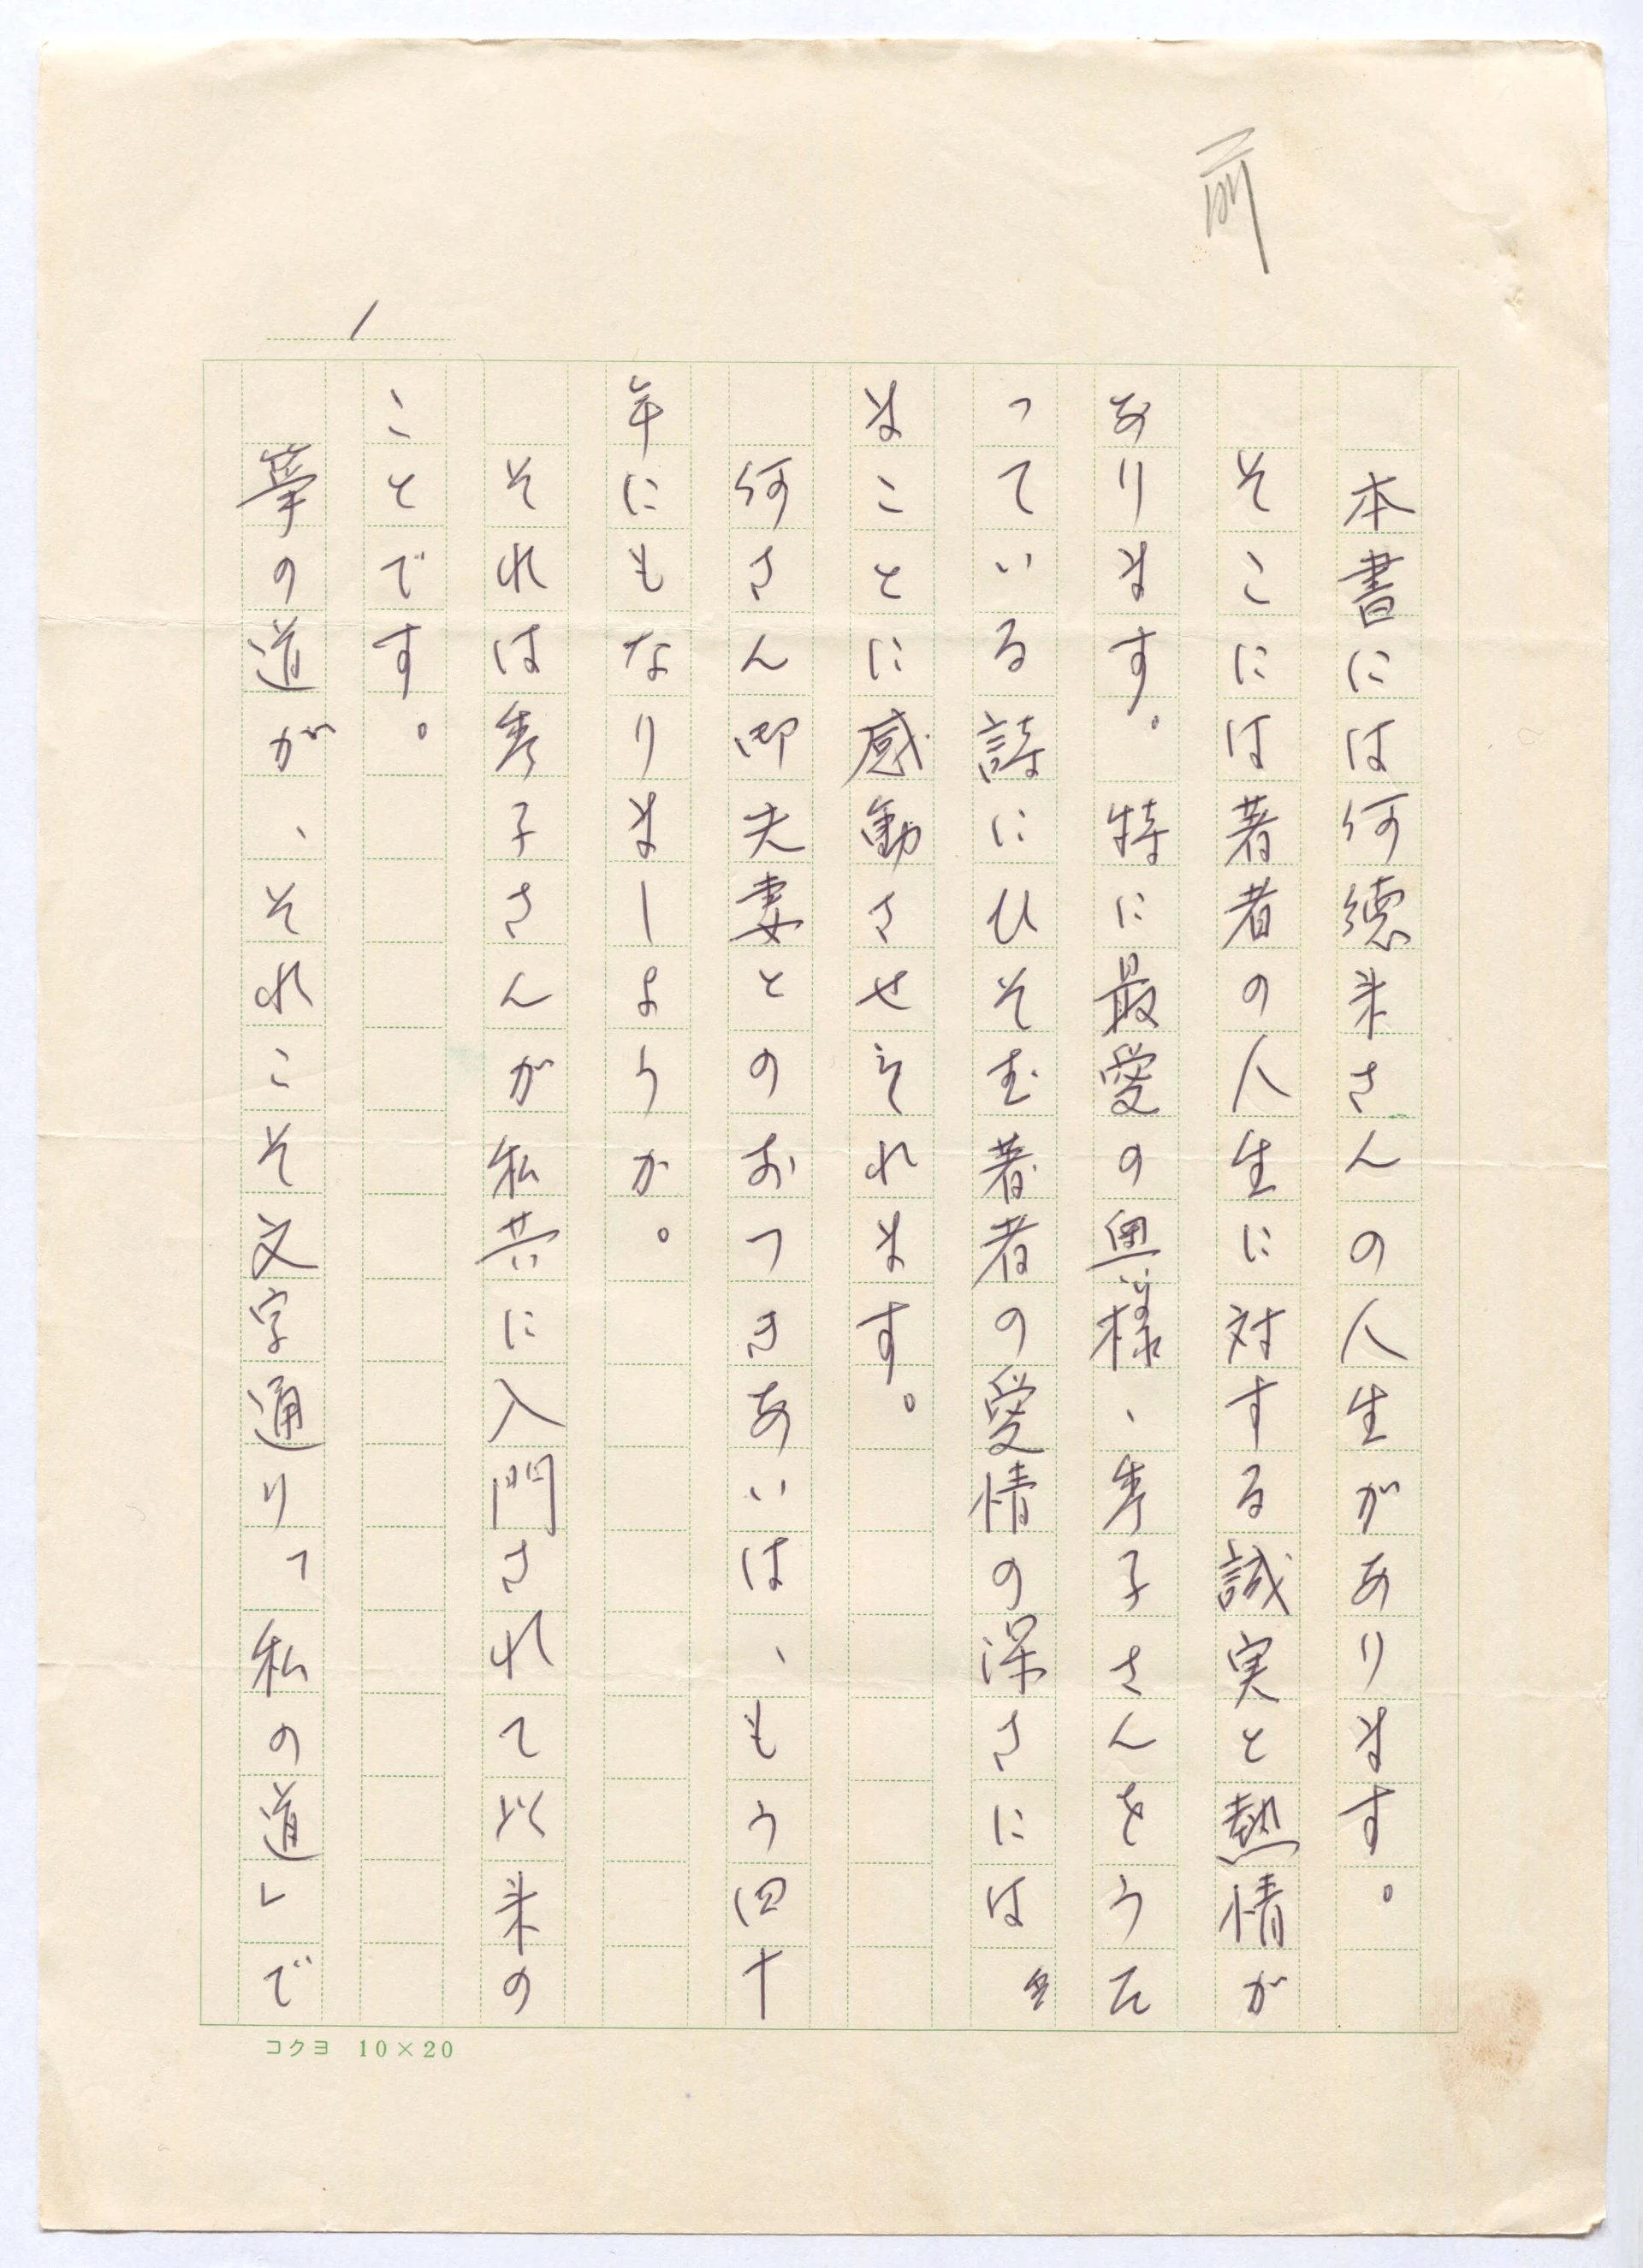 前
1
本書には何徳来さんの人生があります。
そこには著者の人生に対する誠実と熱情が
あります。特に最愛の奥様、秀子さんをうた
っている詩にひそむ著者の愛情の深さには
まことに感動させられます。
何さん御夫妻とのおつきあいは、もう四十
年にもなりましょうか。
それは秀子さんが私共に入門されて以来の
ことです。
箏の道が、それこそ文字通り「私の道」で
コクヨ 10×20